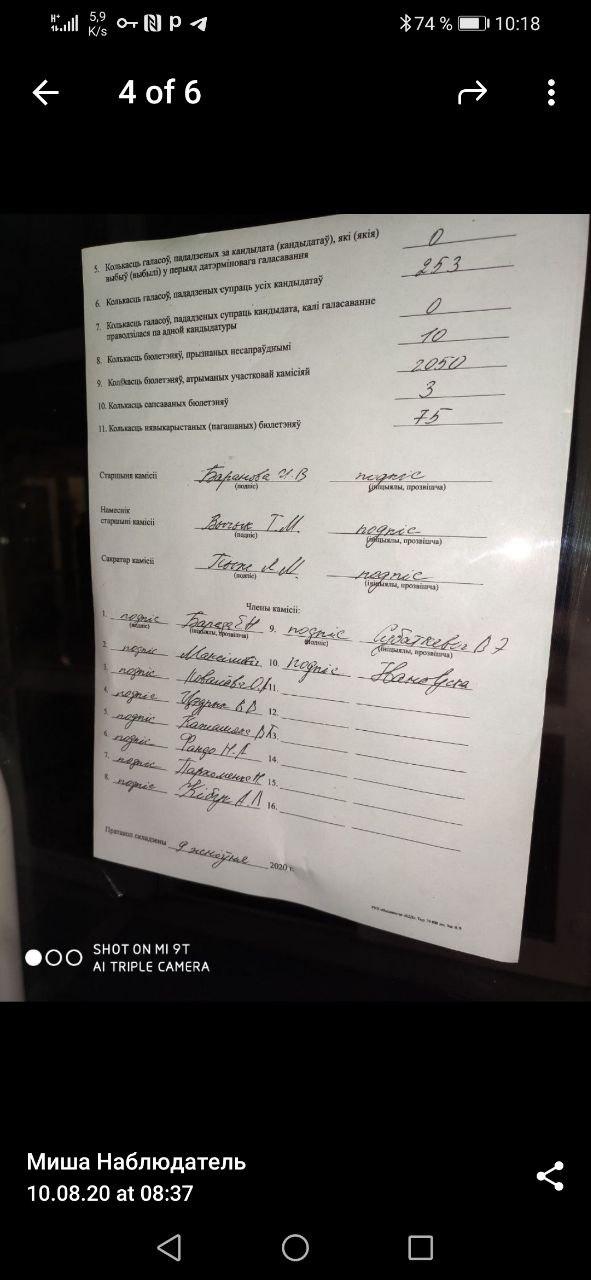 5,9 K/s 74 % 10:18
4 of 6
5. Колькасць галасоў, пададзеных за кандыдата (кандыдатаў), які (якія)
выбыў (выбылі) у перыяд датэрміновага галасавання 0
6. Колькасць галасоў, пададзеных супраць усіх кандыдатаў 253
7. Колькасць галасоў, пададзеных супраць кандыдата, калі галасаванне
праводзілася па адной кандыдатуры 0
8. Колькасць бюлетэняў, прызнаных несапраўднымі 10
9. Колькасць бюлетэняў, атрыманых участковай камісіяй 2050
10. Колькасць сапсаваных бюлетэняў 3
11. Колькасць нявыкарыстаных (пагашаных) бюлетэняў 75
Старшыня камісіі Баранова И.В подпіс
(подпіс) (ініцыялы, прозвішча)
Намеснік
старшыні камісіі Т.М. подпіс
(подпіс) (ініцыялы, прозвішча)
Сакратар камісіі Л.М. подпіс
(подпіс) (ініцыялы, прозвішча)
Члены камісіі:
1. подпіс 9. подпіс В Э
(подпіс) (ініцыялы, прозвішча) (подпіс) (ініцыялы, прозвішча)
2. подпіс 10. подпіс
3. подпіс 11.
4. подпіс В В 12.
5. подпіс 13.
6. подпіс Фандо Н.А 14.
7. подпіс Пархоменко 15.
8. подпіс А Л 16.
Пратакол складзены 9 жніўня 2020 г.
SHOT ON MI 9T
AI TRIPLE CAMERA
Миша Наблюдатель
10.08.20 at 08:37